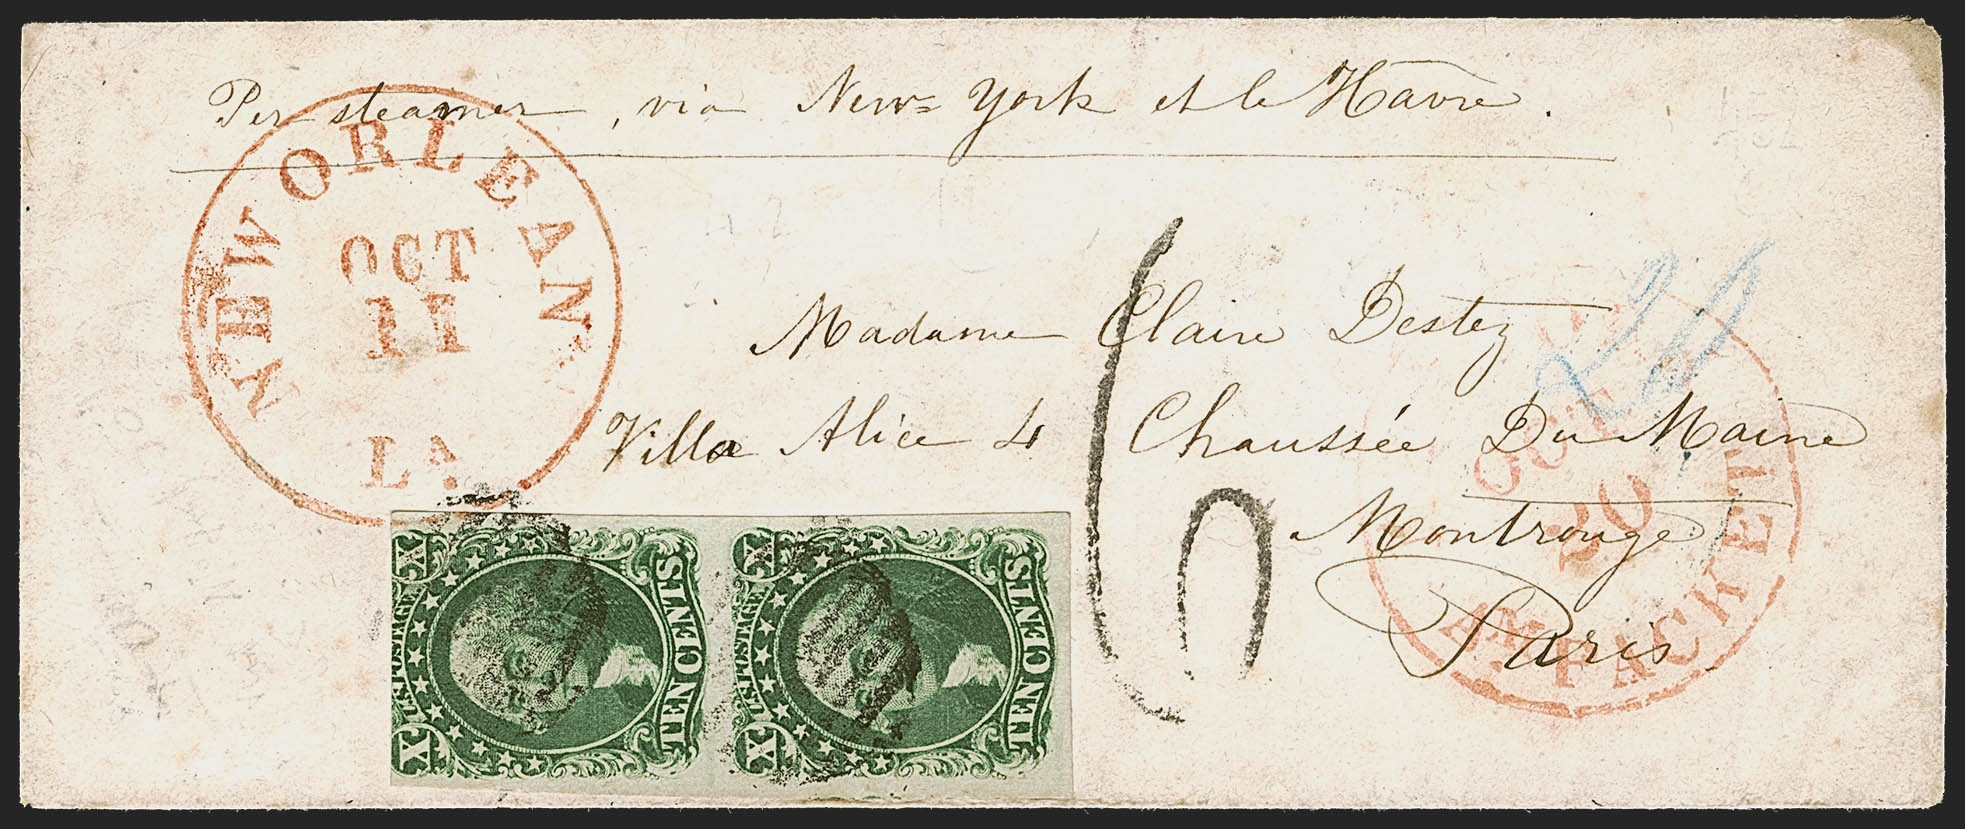 Per steamer, via New=York et le Havre.
NEW ORLEAN
OCT
11
LA.
20
Madame Claire Destez
Villa Alice 4 Chaussée Du Maine
Montrouge
Paris
AM PACKET
20
6
X U.S. POSTAGE X
TEN CENTS
X U.S. POSTAGE X
TEN CENTS